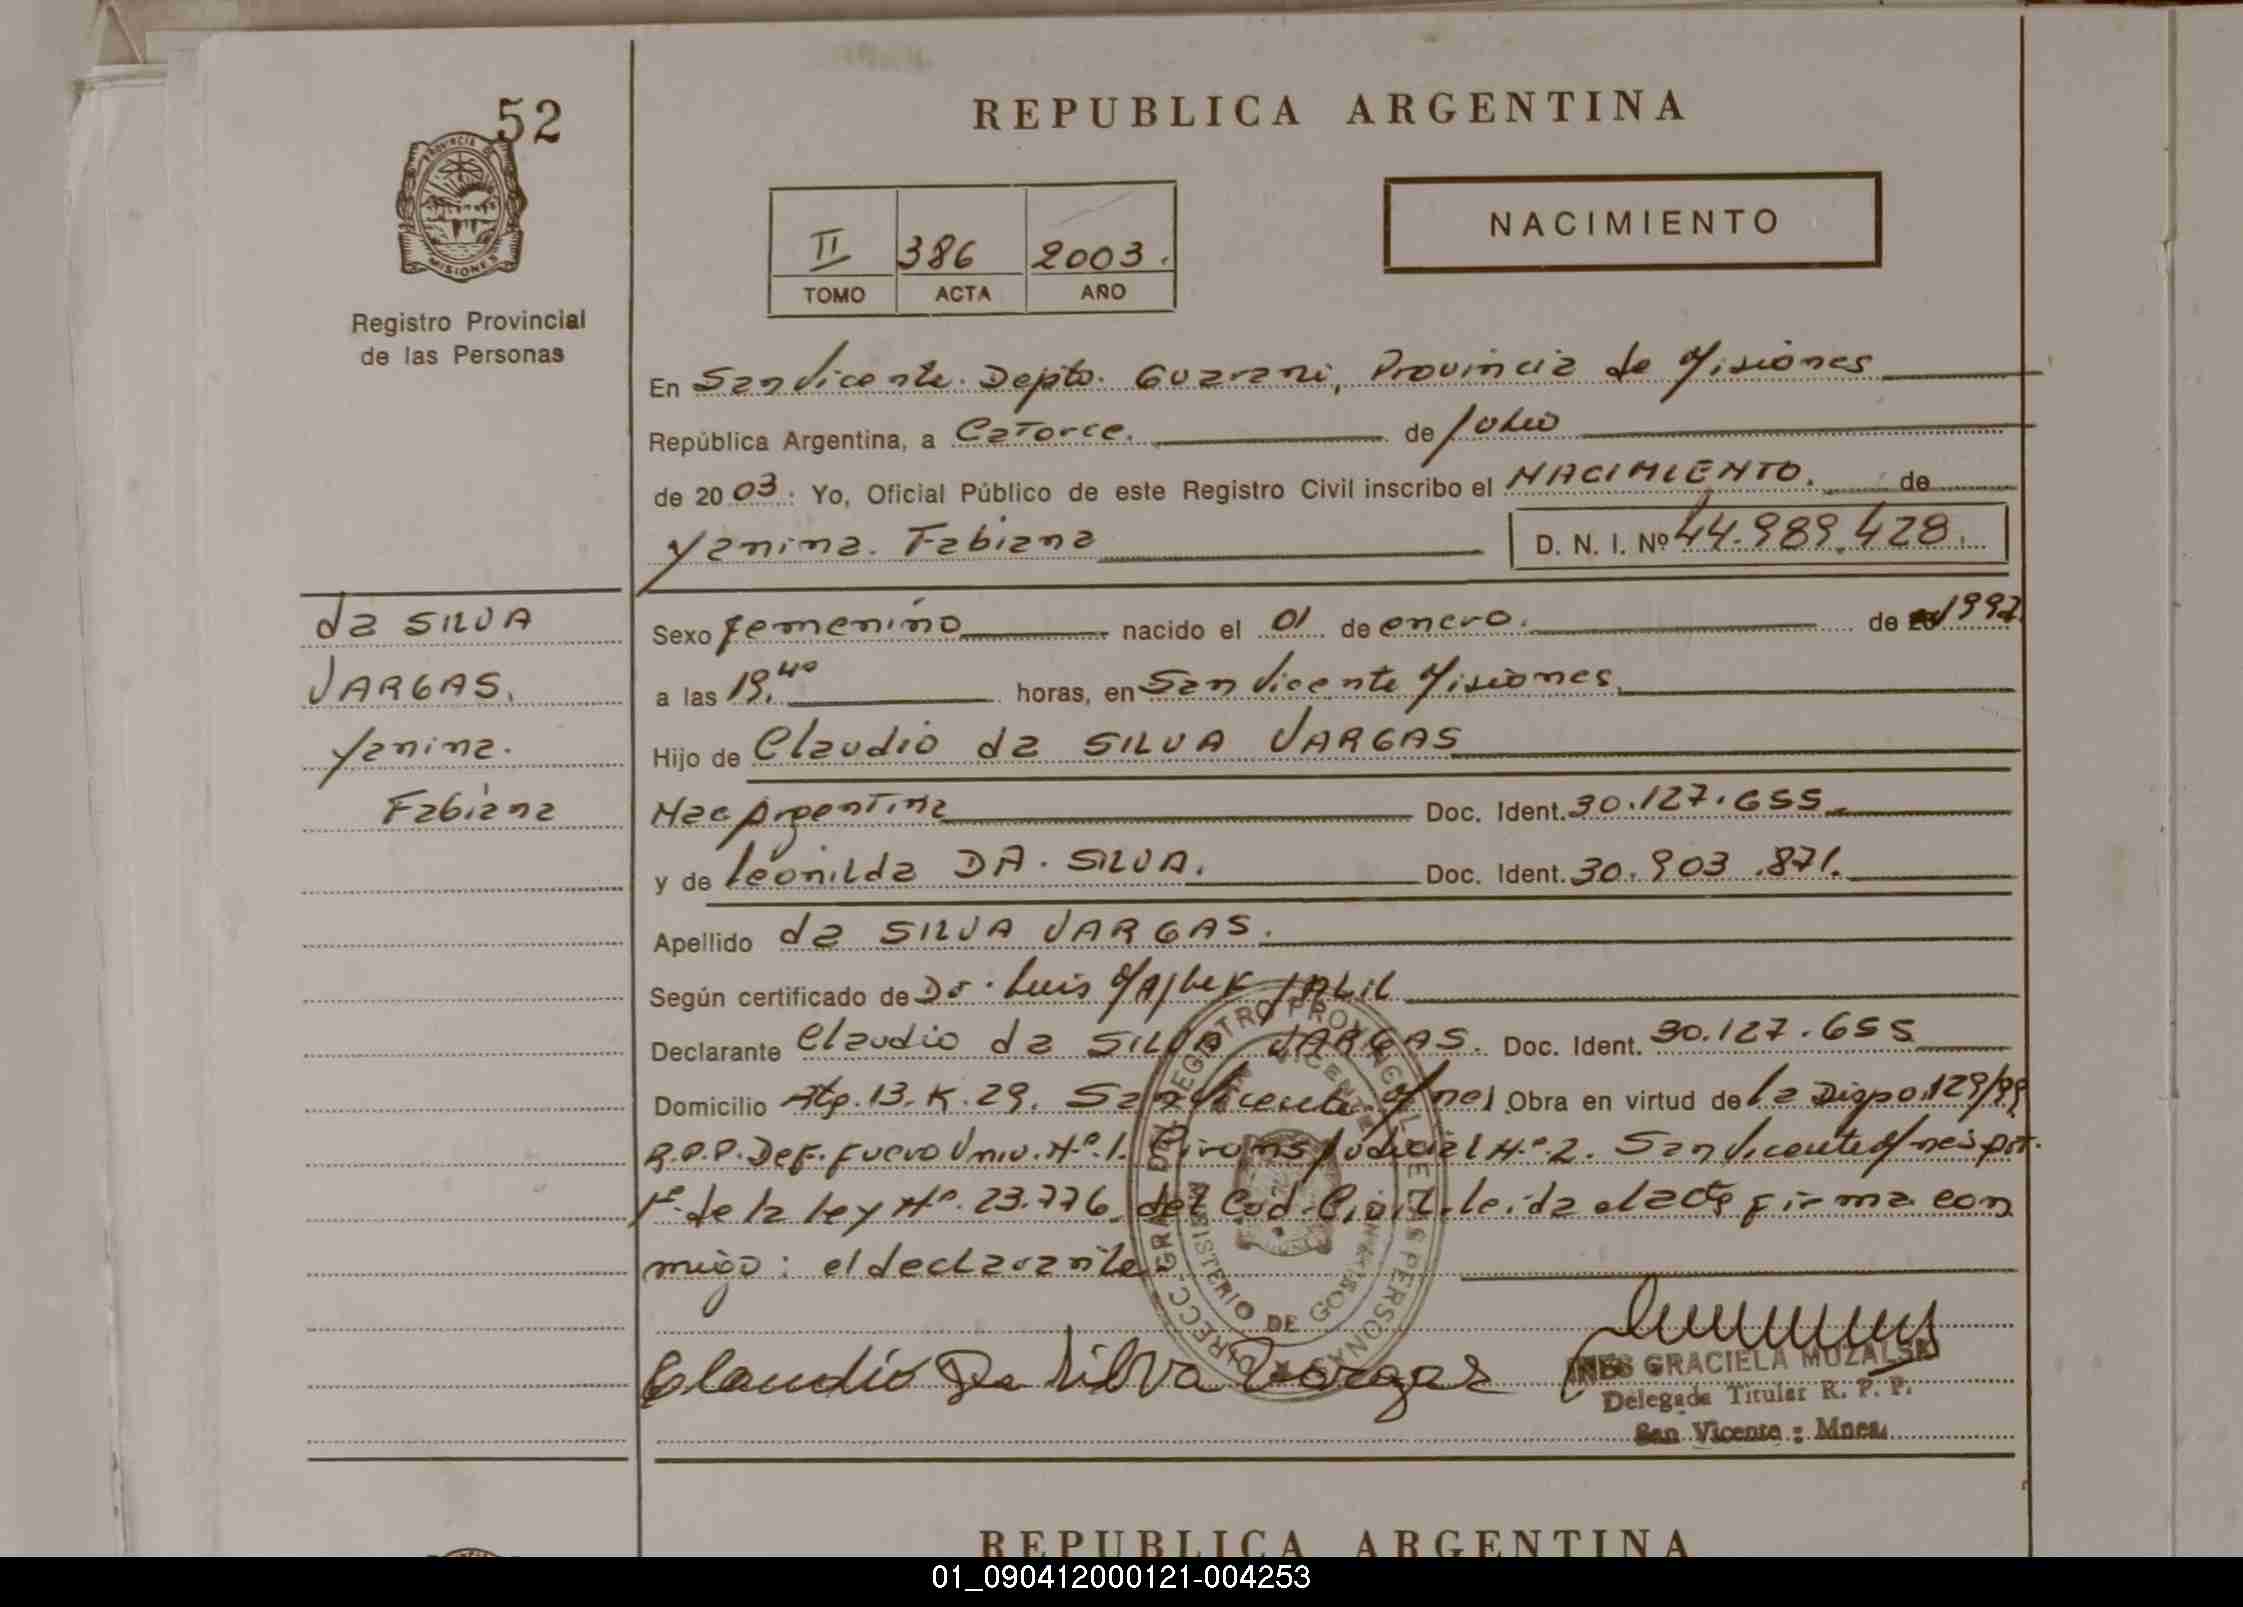 52
REPUBLICA ARGENTINA
PROVINCIA DE
MISIONES
Registro Provincial
de las Personas
NACIMIENTO
II 386 2003.
TOMO ACTA AÑO
En San Vicente. Depto. Guarani, Provincia de Misiones
República Argentina, a Catorce. de Julio
de 2003. Yo, Oficial Público de este Registro Civil inscribo el NACIMIENTO. de
Yanina. Fabiana D. N. I. Nº 44.989.428.
da SILVA
VARGAS.
Yanina.
Fabiana
Sexo femenino nacido el 01 de enero. de 1997.
a las 19.40 horas, en San Vicente Misiones
Hijo de Claudio da SILVA VARGAS
Nac Argentina Doc. Ident. 30.127.655
y de Leonilda DA. SILVA. Doc. Ident. 30.903.871.
Apellido da SILVA VARGAS.
Según certificado de Dr. Luis
Declarante Claudio da SILVA VARGAS. Doc. Ident. 30.127.655
Domicilio 13. K. 29. San Vicente Mnes Obra en virtud de la Dispo. 129/99
R.P.P. Def. Fuero Univ. Nº. 1. Judicial Nº. 2. San Vicente Mnes
1º de la Ley Nº. 23.776. del Cod. Civil. Leida el acta firma con
migo: el declarante
DIRECC. GRAL. DEL REGISTRO PROVINCIAL DE LAS PERSONAS
MINISTERIO DE GOBIERNO
Claudio Da Silva Vargas
INES GRACIELA MUZALSKI
Delegada Titular R. P. P.
San Vicente : Mnes.
REPUBLICA ARGENTINA
01_090412000121-004253